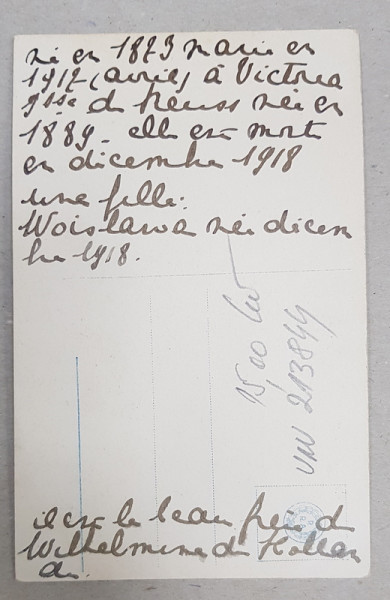 né en 1873 marié en
1917 (avril) à Victoria
Psse de Reuss née en
1889. elle est morte
en décembre 1918
une fille:
Woislawa née décem
bre 1918.
15,00
VNN 213844
il est le beau frère de
Wilhelmine de Hollan
de.